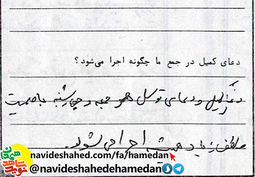 دعای کمیل در جمع ما چگونه اجرا می‌شود؟
دعای کمیل و دعای توسل هر جمعه و چهارشنبه با همت
زیاد همیشه اجرا می شود.
navideshahed.com/fa/hamedan
@navideshahedehamedan